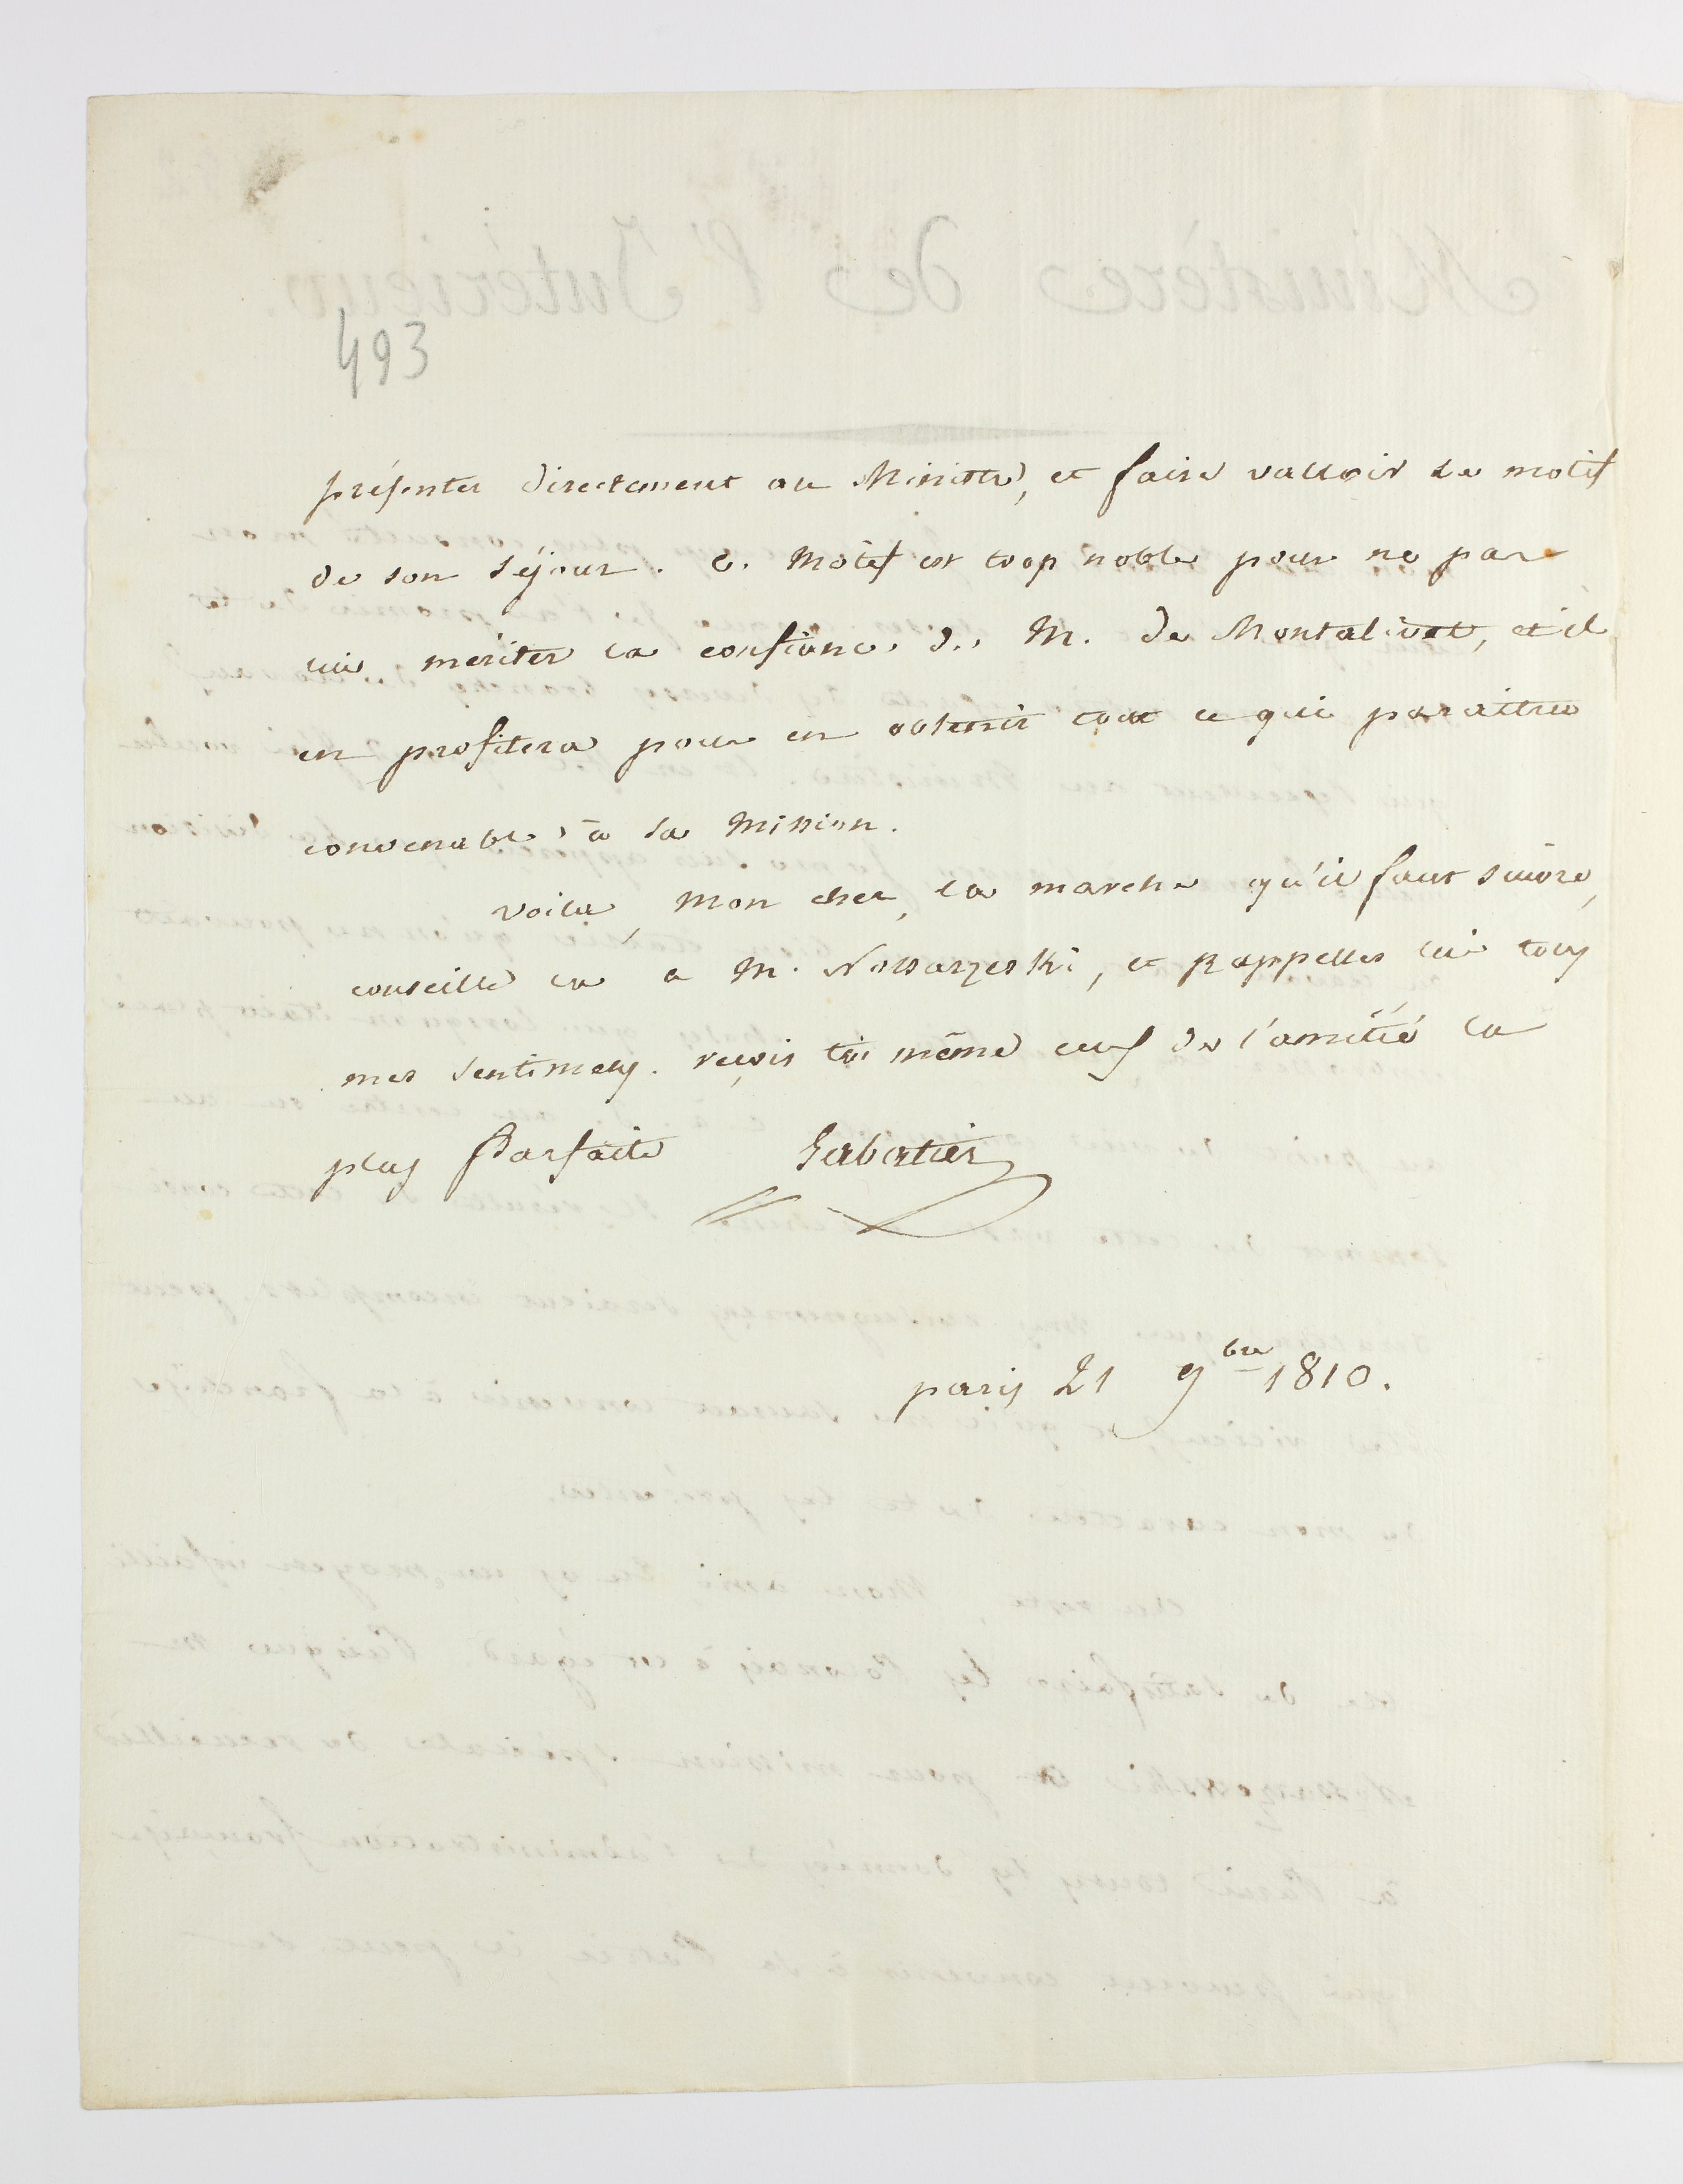 493
présenter directement au Ministre, et faire valloir le motif
de son séjour. Ce Motif est trop noble pour ne pas
lui mériter la confiance de M. de Montalivet, et il
en profitera pour en obtenir tout ce qui paraittra
convenable à sa Mission.
voila, Mon cher, la marche qu'il faut suivre,
conseille la a M. Nossarzeski, et Rappelles lui tous
mes sentimens. reçois toi même ceux de l'amitié la
plus Parfaite Sabatier
paris 21 9bre 1810.